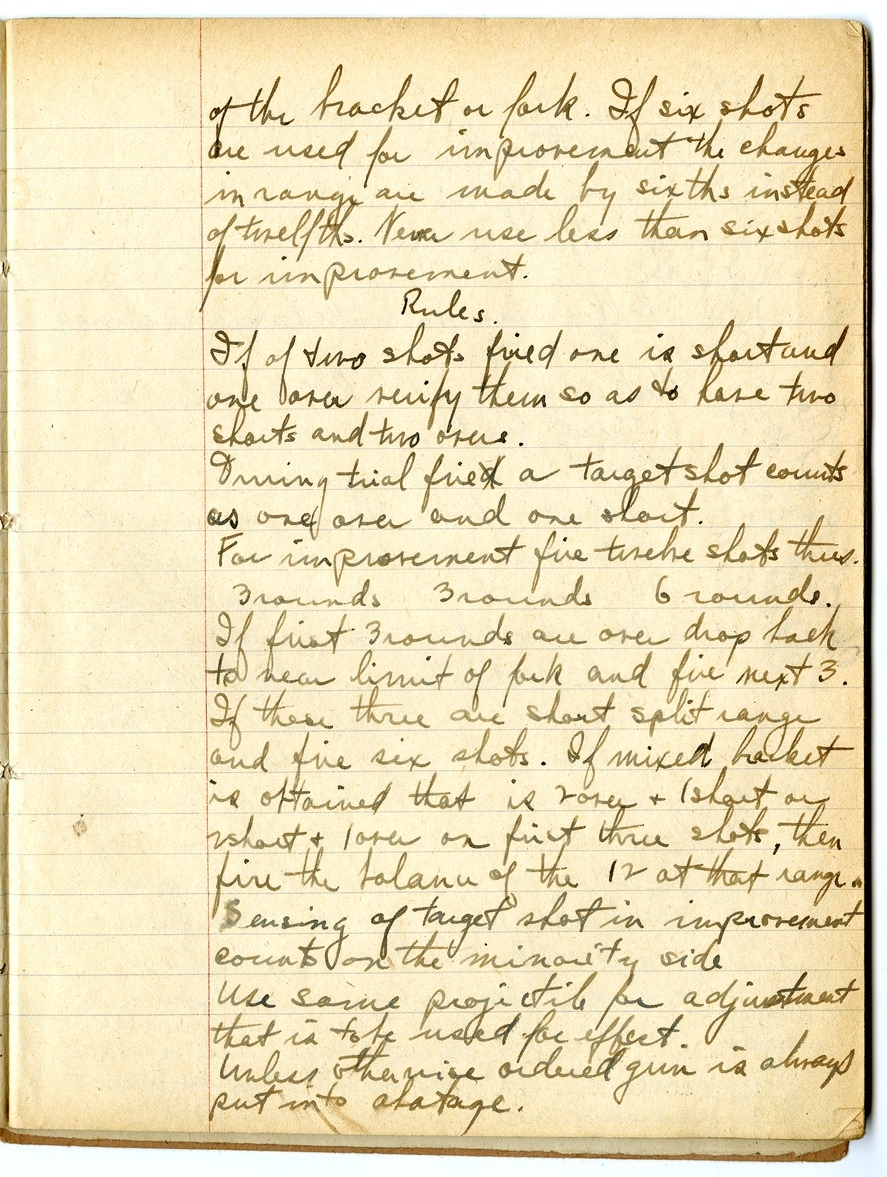 of the bracket or fork. If six shots
are used for improvement the changes
in range are made by sixths instead
of twelfths. Never use less than six shots
for improvement.
Rules.
If of two shots fired one is short and
one over verify them so as to have two
shorts and two overs.
During trial fire a target shot counts
as one over and one short.
For improvement fire twelve shots thus.
3 rounds 3 rounds 6 rounds.
If first 3 rounds are over drop back
to near limit of fork and fire next 3.
If these three are short split range
and fire six shots. If mixed bracket
is obtained that is 2 over + 1 short or
2 short + 1 over on first three shots, then
fire the balance of the 12 at that range.
Sensing of target shot in improvement
counts on the minority side
Use same projectile for adjustment
that is to be used for effect.
Unless otherwise ordered gun is always
put into